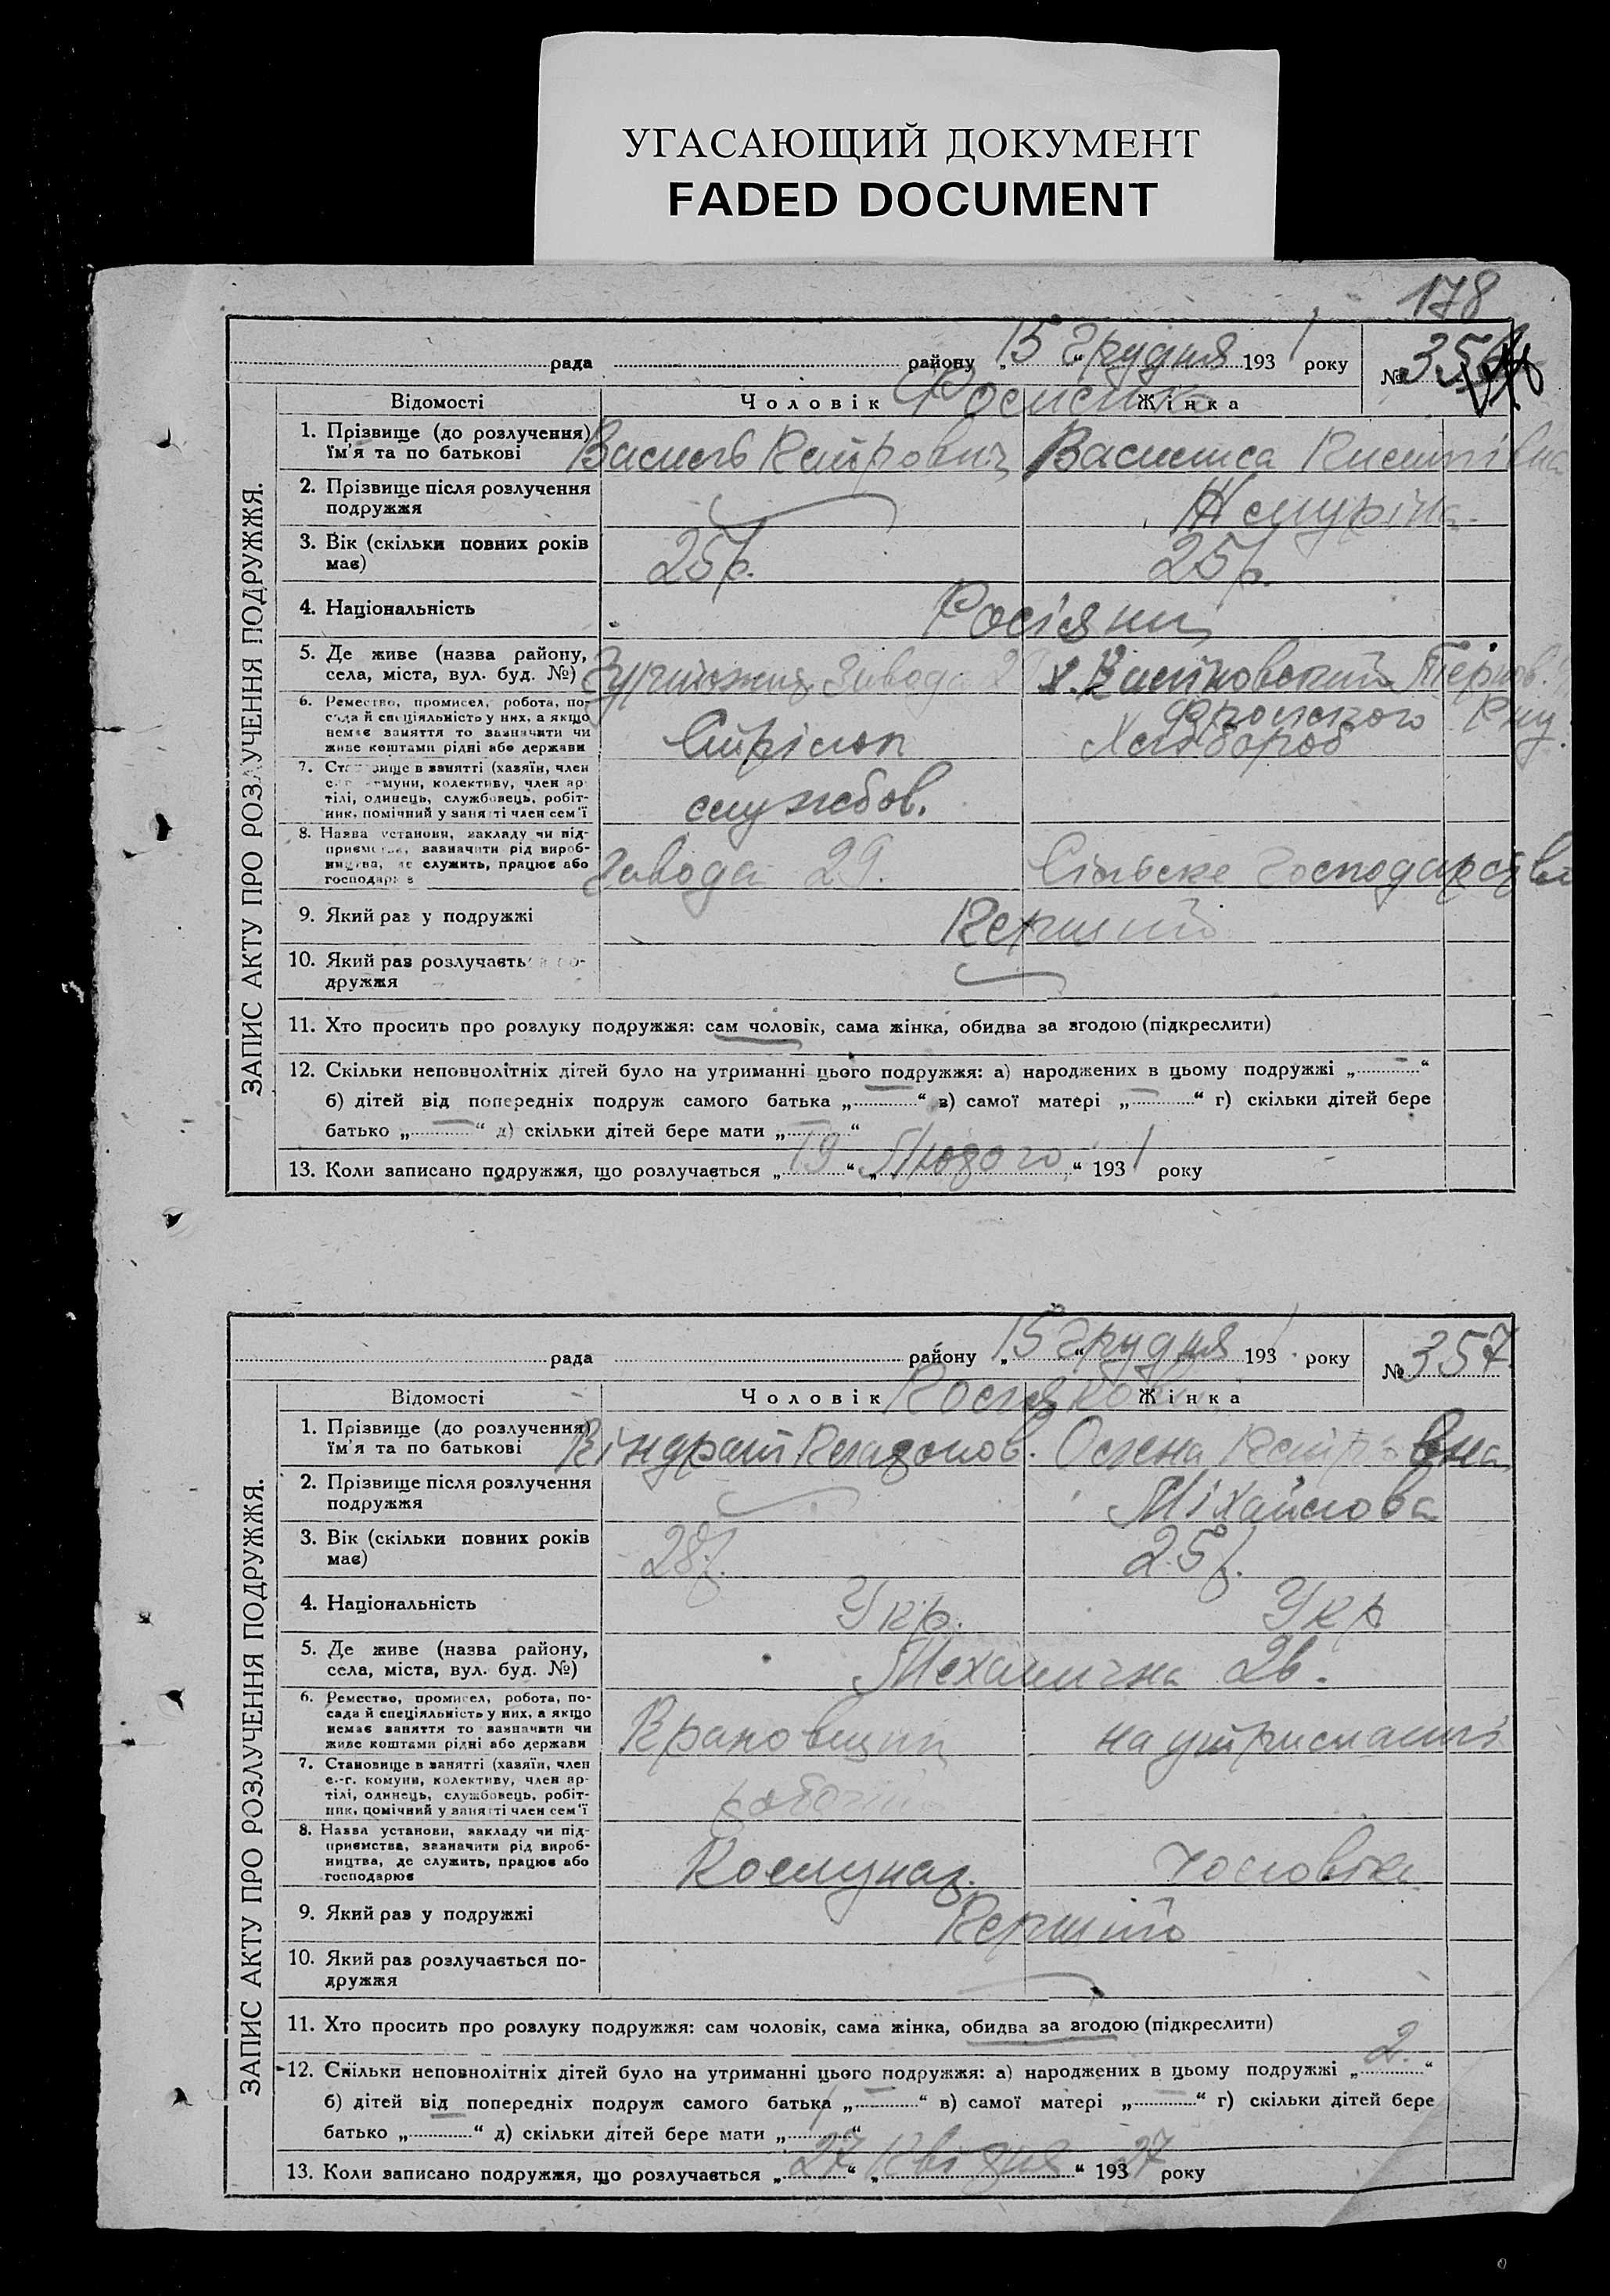 УГАСАЮЩИЙ ДОКУМЕНТ
FADED DOCUMENT
178
рада району „15“ Грудня 1931 року
№ 356
ЗАПИС АКТУ ПРО РОЗЛУЧЕННЯ ПОДРУЖЖЯ.
Відомості Чоловік Жінка
1. Прізвище (до розлучення) ім'я та по батькові Василь Петрович Василиса Пилипівна
2. Прізвище після розлучення подружжя
3. Вік (скільки повних років має) 25 р. 25 р.
4. Національність Росіяни
5. Де живе (назва району, села, міста, вул. буд. №) Гуртожит. Завода 29
6. Ремество, промисел, робота, посада й спеціяльність у них, а якщо немає заняття то зазначити чи живе коштами рідні або держави Стрілоп Хлібороб
7. Становище в занятті (хазяїн, член с.-г. комуни, колективу, член артілі, одинець, службовець, робітник, помічний у занятті член сем'ї службов.
8. Назва установи, закладу чи підприємства, зазначити рід виробництва, де служить, працює або господарює Завода 29. Сільске Господарство
9. Який раз у подружжі Перший
10. Який раз розлучається подружжя
11. Хто просить про розлуку подружжя: сам чоловік, сама жінка, обидва за згодою (підкреслити)
12. Скільки неповнолітніх дітей було на утриманні цього подружжя: а) народжених в цьому подружжі „—“
б) дітей від попередніх подруж самого батька „—“ в) самої матері „—“ г) скільки дітей бере
батько „—“ д) скільки дітей бере мати „—“
13. Коли записано подружжя, що розлучається „19“ „Лютого“ 1931 року
рада району „15“ Грудня 1931 року
№ 357
ЗАПИС АКТУ ПРО РОЗЛУЧЕННЯ ПОДРУЖЖЯ.
Відомості Чоловік Жінка
1. Прізвище (до розлучення) ім'я та по батькові Кіндрат Олена Петрівна
2. Прізвище після розлучення подружжя Міхайлова
3. Вік (скільки повних років має) 28 р. 25 р.
4. Національність Укр. Укр
5. Де живе (назва району, села, міста, вул. буд. №) Механична 26.
6. Ремество, промисел, робота, посада й спеціяльність у них, а якщо немає заняття то зазначити чи живе коштами рідні або держави Крановщик на утриманні
7. Становище в занятті (хазяїн, член с.-г. комуни, колективу, член артілі, одинець, службовець, робітник, помічний у занятті член сем'ї робочий
8. Назва установи, закладу чи підприємства, зазначити рід виробництва, де служить, працює або господарює Комунар. Чоловіка
9. Який раз у подружжі Перший
10. Який раз розлучається подружжя
11. Хто просить про розлуку подружжя: сам чоловік, сама жінка, обидва за згодою (підкреслити)
12. Скільки неповнолітніх дітей було на утриманні цього подружжя: а) народжених в цьому подружжі „2.“
б) дітей від попередніх подруж самого батька „—“ в) самої матері „—“ г) скільки дітей бере
батько „“ д) скільки дітей бере мати „“
13. Коли записано подружжя, що розлучається „27“ „Квітня“ 193 27 року